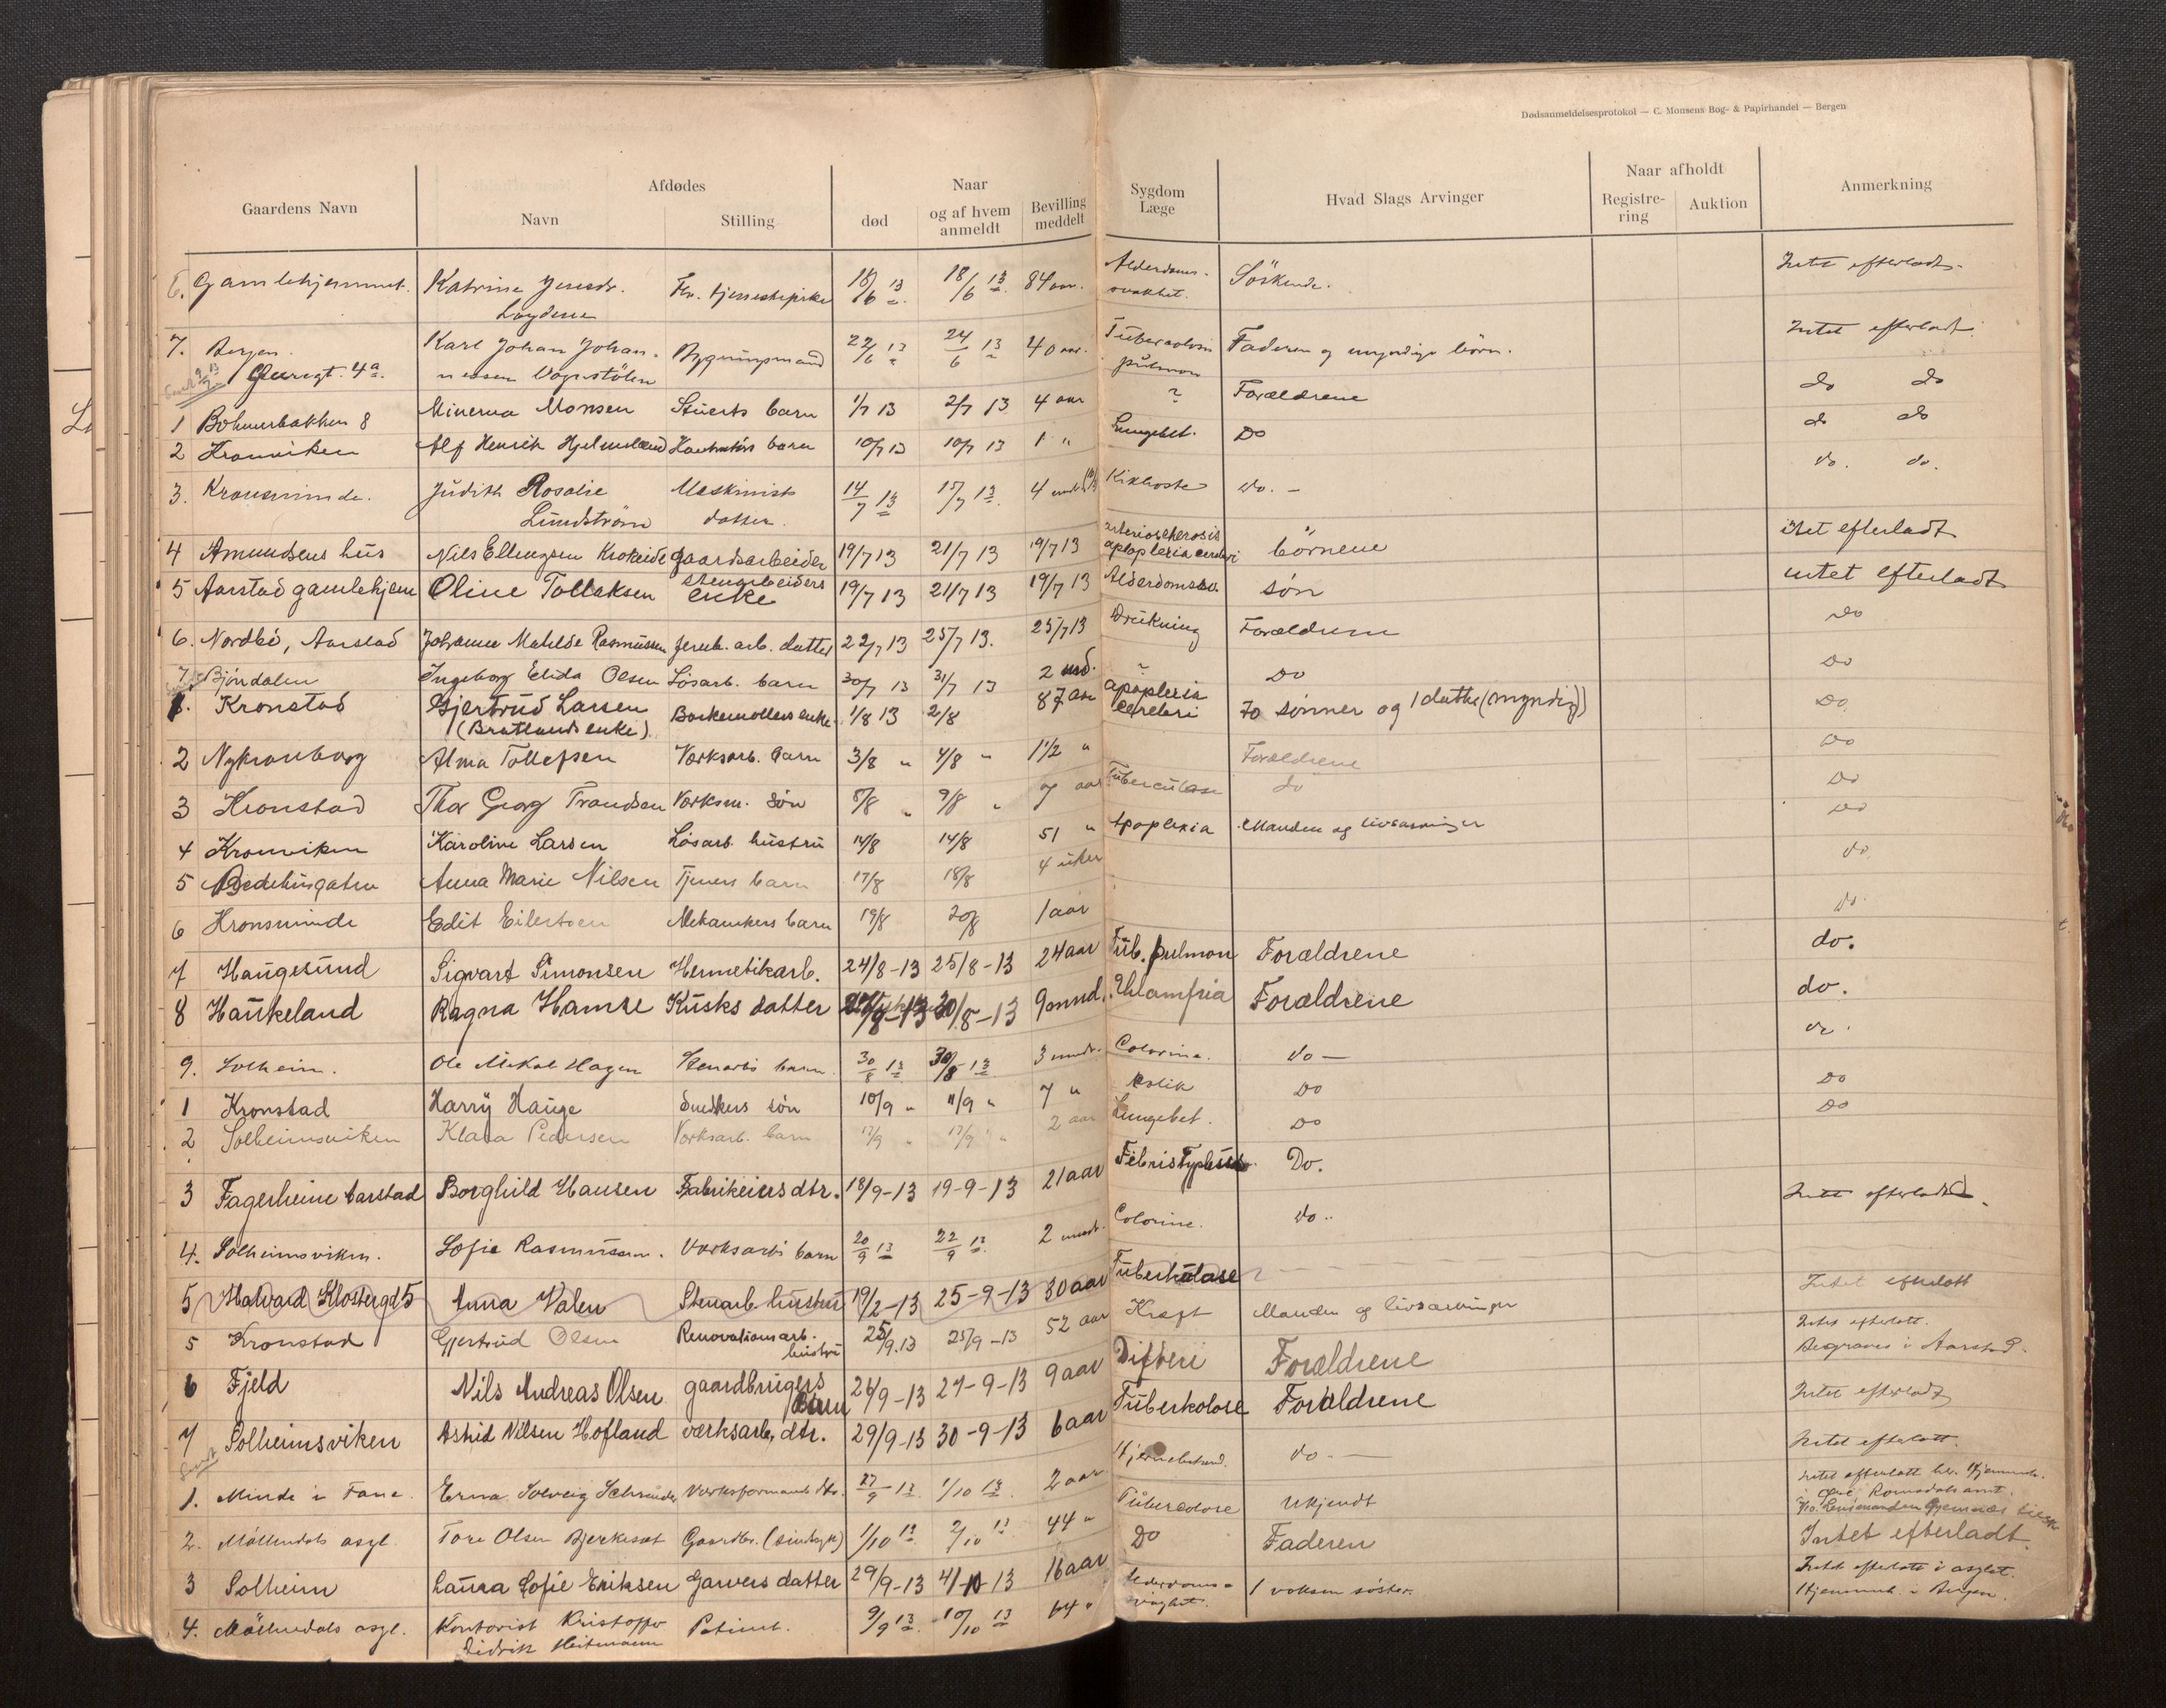 Dødsanmeldelsesprotokol — C. Monsens Bog- & Papirhandel — Bergen
Gaardens Navn
Afdødes
Navn
Stilling
Naar
død
og af hvem anmeldt
Bevilling meddelt
Sygdom
Læge
Hvad Slags Arvinger
Naar afholdt
Registre-
ring
Auktion
Anmerkning
6. Gamlehjemmet. Katrine Jensdr. Fhv. tjenestepike 18/6 13 18/6 13 84 aar. Alderdoms- Søskende. Intet efterladt.
svakhet.
7. Bergen. Karl Johan Johan- Bygningsmand 22/6 13 24/6 13 40 aar. Tuberculosis Faderen og umyndige børn. Intet efterladt
4a nessen pulmon
1 Bøhmerbakken 8 Minerva Monsen Stuerts barn 1/7 13 2/7 13 4 aar ? Forældrene do do
2 Kronviken Alf Henrik Hjelmeland barn 10/7 13 10/7 13 1 " Lungebet. Do do do
3. Kronsminde. Judith Rosalie Maskinists 14/7 13 15/7 13 4 Kikhoste do. — do. do.
Lundstrøm datter.
4 Amundsens hus Nils Ellingsen Krokeide gaardsarbeider 19/7 13 21/7 13 19/7 13 arteriosclerosis børnene intet efterladt
apoplexia cerebri
5 Aarstad gamlehjem Oline Tollaksen stenarbeiders 19/7 13 21/7 13 19/7 13 Alderdomssv. søn intet efterladt
enke
6. Nordbø, Aarstad Johanne Matilde Rasmussen Jernb. arb. datter 22/7 13 25/7 13. 25/7 13 Drukning Forældrene Do
7. Bjørndalen Ingeborg Elida Olsen Løsarb. barn 30/7 13 31/7 13 2 md. ? Do Do
1. Kronstad Gjertrud Larsen enke 1/8 13 2/8 87 aar apoplexia sønner og 1 datter (myndig) Do
(Bratlands enke) cerebri
2 Nykronborg Alma Tollefsen Verksarb. barn 3/8 " 4/8 " 1 1/2 " Forældrene Do
3 Kronstad Thor Georg Trondsen Verksm. søn 8/8 " 9/8 " 7 aar Tuberculose do Do
4 Kronviken Karoline Larsen Løsarb. hustru 14/8 14/8 51 " Apoplexia Manden og livsarvinger Do
5 Bedehusgaten Anna Marie Nilsen Tjeners barn 17/8 18/8 4 uker do.
6 Kronsminde Edit Eilertsen Mekanikers barn 19/8 20/8 1 aar Do.
7 Haugesund Sigvart Simonsen Hermetikarb. 24/8-13 25/8-13 24 aar Tub. pulmon Forældrene do.
8 Haukeland Ragna Hamre Kusks datter 30/8-13 9 mnd. Forældrene do.
9. Solheim. Ole Mikal Hagen Stenarbs barn 30/8 13 30/8 13 3 mndr. Colerine. do —
1 Kronstad Harry Hauge Snedkers søn 10/9 " 11/9 " 7 " Kolik Do Do
2 Solheimsviken Klara Pedersen Verksarb. barn 17/9 " 17/9 " 2 aar Lungebet. Do Do
3 Fagerheim Aarstad Borghild Hansen dtr. 18/9-13 19-9-13 21 aar Febris Typhoid. Do. Intet efterladt.
4. Solheimsviken. Sofie Rasmussen. Verksarbs barn 20/9 13 22/9 13. 2 mndr. Colerine. do..
5 Halvard Klostergt 5 Anna Valen Stenarb hustru 19/2-13 25-9-13 30 aar Tuberkulose
5 Kronstad Gjertrud Olsen Renovationsarb. 25/9.13 25/9-13 52 aar Kræft Manden og livsarvinger Intet efterlatt
hustru
6 Fjeld Nils Andreas Olsen gaardbrugers 24/9-13 27-9-13 9 aar Difteri Forældrene Intet efterlatt.
Barn Begraves i Aarstad.
7 Solheimsviken Astrid Nilsen Hofland værksarb, dtr. 29/9-13 30-9-13 6 aar Tuberkolose Forældrene Intet efterladt
1. Minde i Fane. Erna Solveig Schrøder Verksformands dtr. 27/9-13. 1/10 13. 2 aar do. — Intet efterlatt.
2. Møllendals asyl. Tore Olsen Bjerkeset Gaardbr. (sindsyk) 1/10 13 2/10 13 44 " Tuberculose Ukjendt Intet efterlatt her. Hjemmeh.
i Romsdals amt.
3 Solheim Laura Sofie Eriksen Garvers datter 29/9-13 4/10-13 16 aar Do Faderen Intet efterladt
4. Møllendals asyl. Kontorist Kristoffer Patient. 9/9 13. 10/10 13 64 " Alderdoms- 1 voksen søster. Intet efterlatt i asylet.
Didrik Heitmann svaghet. Hjemmeh. i Bergen.